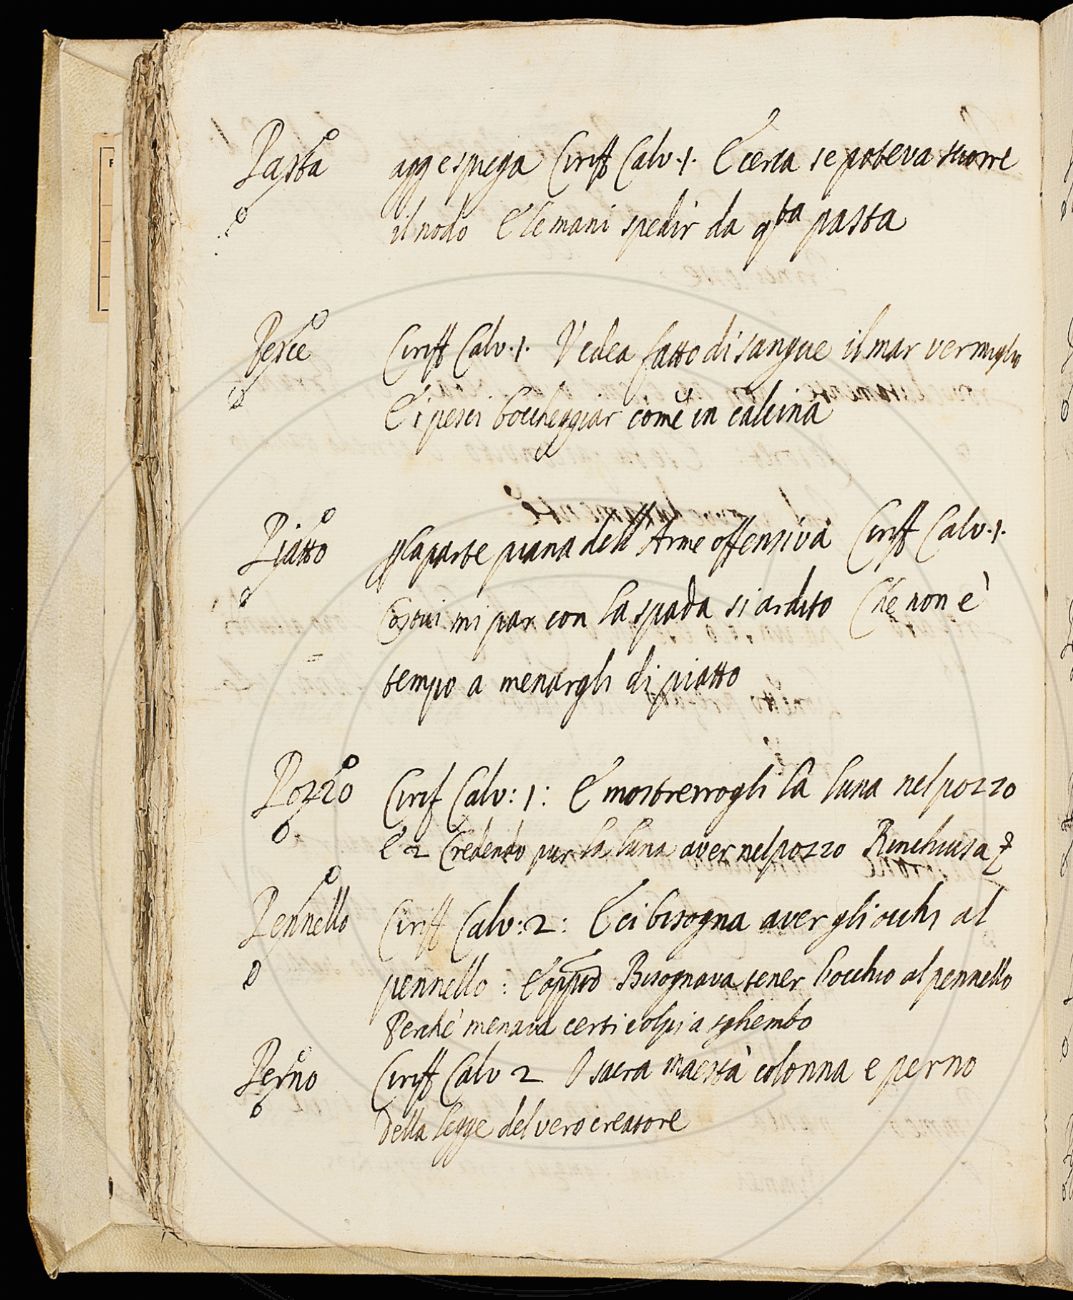 Pasta agg e spiega Ciriff Calv. 1. E cerca se poteva sciorre
il nodo E le mani spedir da qta pasta
Pesce Ciriff Calv. 1. Vedea fatto di sangue il mar vermiglio
E i pesci boccheggiar come in calcina
Piatto la parte piana dell' Arme offensiva Ciriff Calv. 1.
Costui mi par con la spada si ardito Che non è
tempo a menargli di piatto
Pozzo Cirif Calv: 1: E mostrerrogli la luna nel pozzo
E 2 Credendo pur la luna aver nel pozzo Rinchiusa
Pennello Ciriff Calv: 2: E ci bisogna aver gli occhi al
pennello: E appro Bisognava tener l'occhio al pennello
Perché menava certi colpi a sghembo
Perno Ciriff Calv 2 O sacra maestà colonna e perno
Della legge del vero creatore